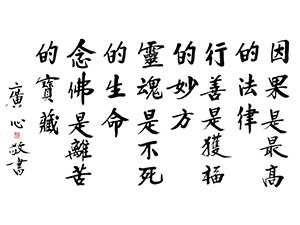 因果是最高
的法律
行善是獲福
的妙方
靈魂是不死
的生命
念佛是離苦
的寶藏
廣心敬書